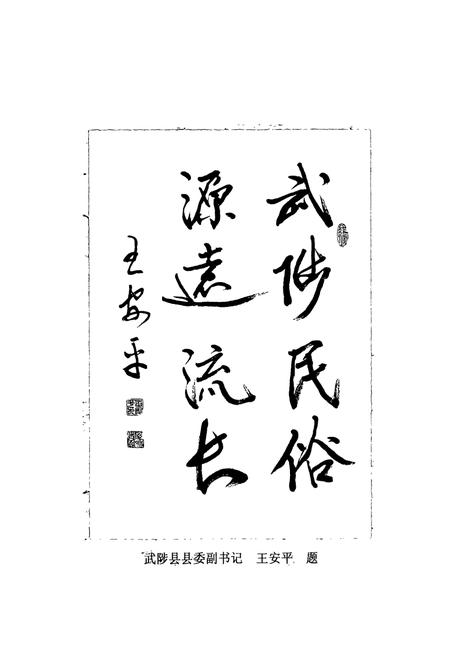 武陟民俗
源远流长
王安平
武陟县县委副书记 王安平 题